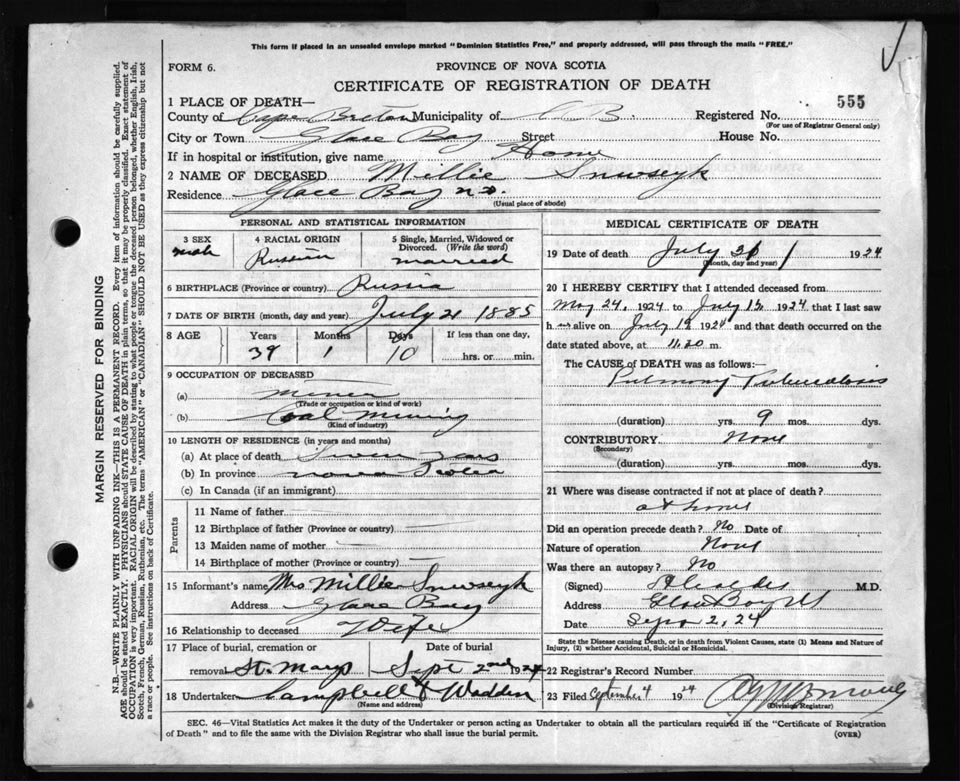 This form if placed in an unsealed envelope marked "Dominion Statistics Free," and properly addressed, will pass through the mails "FREE."
FORM 6.
PROVINCE OF NOVA SCOTIA
CERTIFICATE OF REGISTRATION OF DEATH
1 PLACE OF DEATH—
555
County of Cape Breton Municipality of C B Registered No.
(For use of Registrar General only)
City or Town Glace Bay Street House No.
If in hospital or institution, give name Home
2 NAME OF DECEASED Millie Snwseyk
Residence Glace Bay N.S.
(Usual place of abode)
PERSONAL AND STATISTICAL INFORMATION
3 SEX
4 RACIAL ORIGIN
5 Single, Married, Widowed or Divorced. (Write the word)
male Russian married
6 BIRTHPLACE (Province or country) Russia
7 DATE OF BIRTH (month, day and year) July 21 1885
8 AGE Years Months Days If less than one day,
39 1 10 hrs. or min.
9 OCCUPATION OF DECEASED
(a) Miner
(Trade or occupation or kind of work)
(b) Coal Mining
(Kind of industry)
10 LENGTH OF RESIDENCE (in years and months)
(a) At place of death Seven years
(b) In province Nova Scotia
(c) In Canada (if an immigrant)
Parents
11 Name of father
12 Birthplace of father (Province or country)
13 Maiden name of mother
14 Birthplace of mother (Province or country)
15 Informant's name Mrs Millie Snwseyk
Address Glace Bay
16 Relationship to deceased Wife
17 Place of burial, cremation or Date of burial
removal St. Marys Sept 2nd 1924
18 Undertaker Campbell & Wadden
(Name and address)
MEDICAL CERTIFICATE OF DEATH
19 Date of death July 31 1924
(Month, day and year)
20 I HEREBY CERTIFY that I attended deceased from
May 24, 1924 to July 1924 that I last saw
h alive on July 19 1924 and that death occurred on the
date stated above, at 11.20 m.
The CAUSE OF DEATH was as follows:—
Pulmony Tuberculosis
(duration) yrs. 9 mos. dys.
CONTRIBUTORY None
(Secondary)
(duration) yrs. mos. dys.
21 Where was disease contracted if not at place of death?
at home
Did an operation precede death? No Date of
Nature of operation None
Was there an autopsy? No
(Signed) M.D.
Address Glace Bay
Date Sept 2, 24
State the Disease causing Death, or in death from Violent Causes, state (1) Means and Nature of Injury, (2) whether Accidental, Suicidal or Homicidal.
22 Registrar's Record Number
23 Filed September 4 1924
(Division Registrar)
SEC. 46—Vital Statistics Act makes it the duty of the Undertaker or person acting as Undertaker to obtain all the particulars required in the "Certificate of Registration
of Death" and to file the same with the Division Registrar who shall issue the burial permit.
(OVER)
MARGIN RESERVED FOR BINDING
N.B.—WRITE PLAINLY WITH UNFADING INK—THIS IS A PERMANENT RECORD. Every items of information should be carefully supplied.
AGE should be stated EXACTLY. PHYSICIANS should STATE CAUSE OF DEATH in plain terms, so that it may be properly classified. Exact statement of
OCCUPATION is very important. RACIAL ORIGIN will be described by stating to what people or tongue the deceased person belonged, whether English, Irish,
Scotch, French, German, Russian, Ruthenian, etc. The terms "AMERICAN" or "CANADIAN" SHOULD NOT BE USED as they express citizenship but not
a race or people. See instructions on back of Certificate.